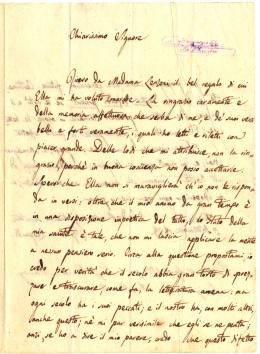 Chiarissimo Signore
Ricevo da Madama Lenzoni il bel regalo di cui
Ella mi ha voluto onorare. La ringrazio caramente e
della memoria affettuosa che serba di me, e de' suoi versi
belli e forti veramente, i quali ho letti e riletti con
piacer grande. Delle lodi che mi attribuisce, non la rin-
grazio, perchè in buona coscienza non posso accettarle.
Spero che Ella non si maraviglierà ch'io non le rispon-
da in versi: oltre che il mio animo da gran tempo è
in una disposizione impoetica del tutto, lo stato della
mia salute è tale, che non mi lascia applicare la mente
a nessun pensiero serio. Circa alla questione propostami, io
credo per verità che il secolo abbia gran torto di sprez-
zare e trascurare, come fa, la letteratura amena: ma
ogni secolo ha i suoi peccati; e il nostro ha, con molti altri,
anche questo; nè mi par verisimile che egli se ne penta;
anzi, se ho a dire il mio parere, credo che questo difetto